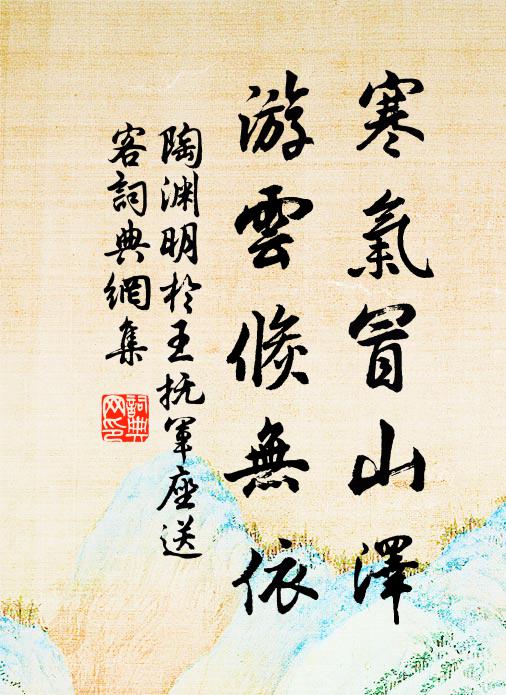 寒氣冒山澤
游雲倐無依
陶渊明於王抚軍座送
客詞典網集
詞典
网印